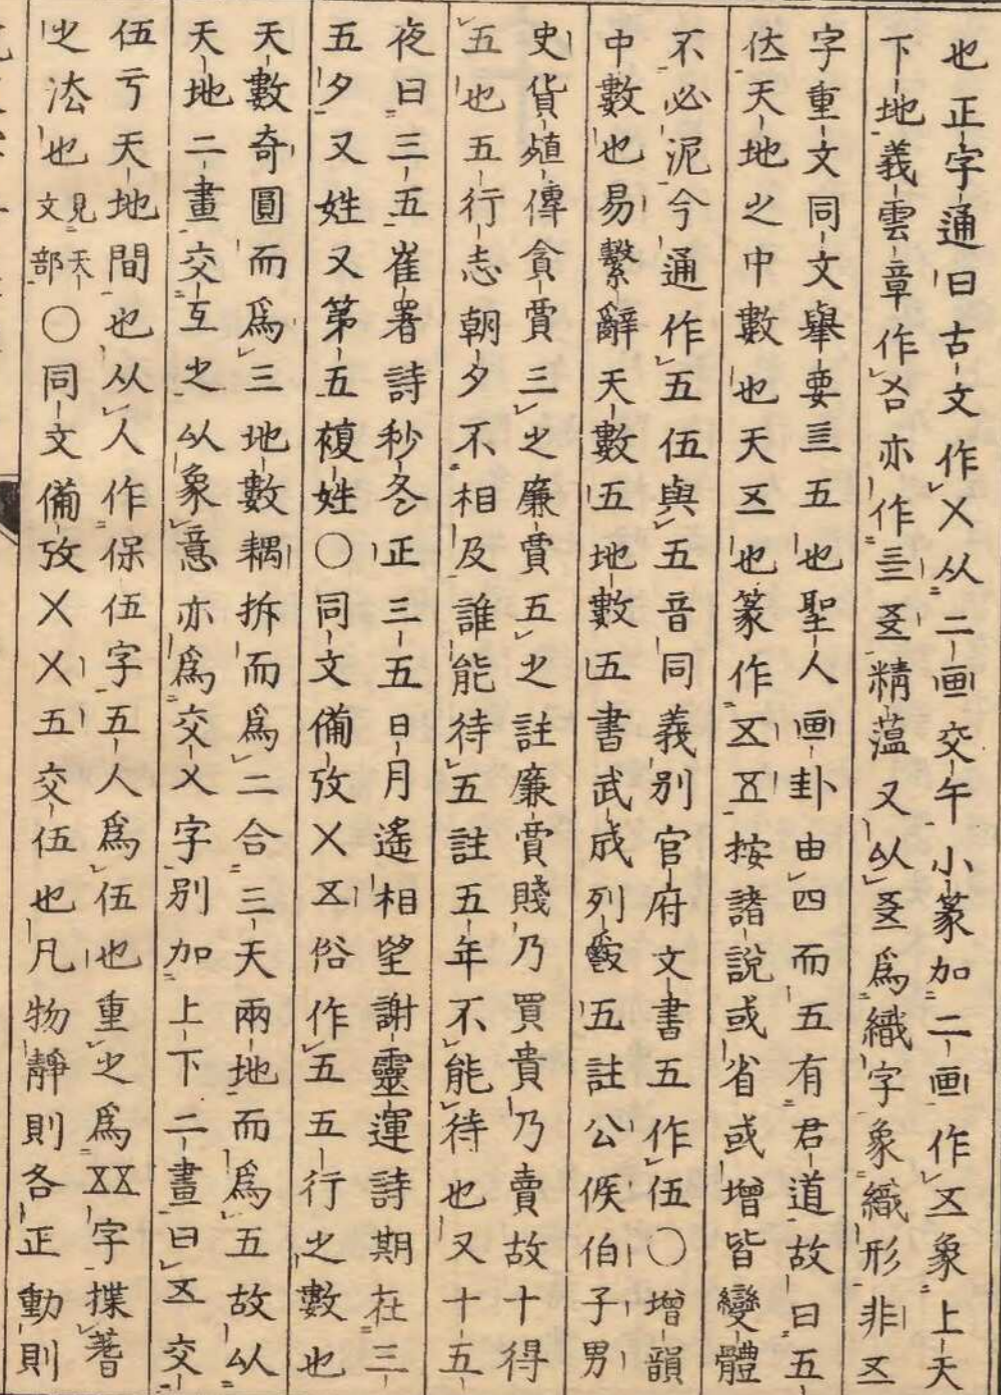 也正字通曰古文作㐅从二画交午小篆加二画作㐅象上天
下地義雲章作㕦亦作亖㸚精薀又从㸚爲織字象織形非㐅
字重文同文舉要亖五也聖人画卦由四而五有君道故曰五
佐天地之中數也天五也篆作㐅五按諸說或省或增皆變體
不必泥今通作五伍與五音同義別官府文書五作伍〇增韻
中數也易繫辭天數五地數五書武成列爵五註公侯伯子男
史貨殖傳貪賈三之廉賈五之註廉賈賤乃買貴乃賣故十得
五也五行志朝夕不相及誰能待五註五年不能待也又十五
夜曰三五崔署詩秒冬正三五日月遙相望謝靈運詩期在三
五夕又姓又第五複姓〇同文備攷㐅五俗作五五行之數也
天數奇圓而爲三地數耦拆而爲二合三天兩地而爲五故从
天地二畫交互之从象意亦爲交㐅字別加上下二畫曰五交
伍亏天地間也从人作保伍字五人爲伍也重之爲㐅㐅字揲蓍
之法也見天文部〇同文備攷㐅㐅五交伍也凡物靜則各正動則